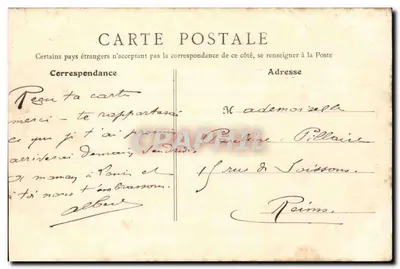 CARTE POSTALE
Certains pays étrangers n'acceptant pas la correspondance de ce côté, se renseigner à la Poste
Correspondance
Reçu ta carte
merci - te rapporterai
ce que je t'ai promis
arriverai demain Vendredi
et maman à Louis et
à toi nous t'embrassons
Albert
Adresse
Mademoiselle
15 rue de Soissons
Reims